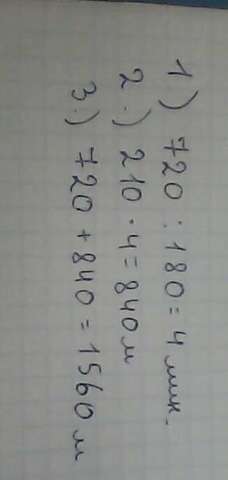 1) 720 : 180 = 4 мин.
2.) 210 · 4 = 840 м
3.) 720 + 840 = 1560 м